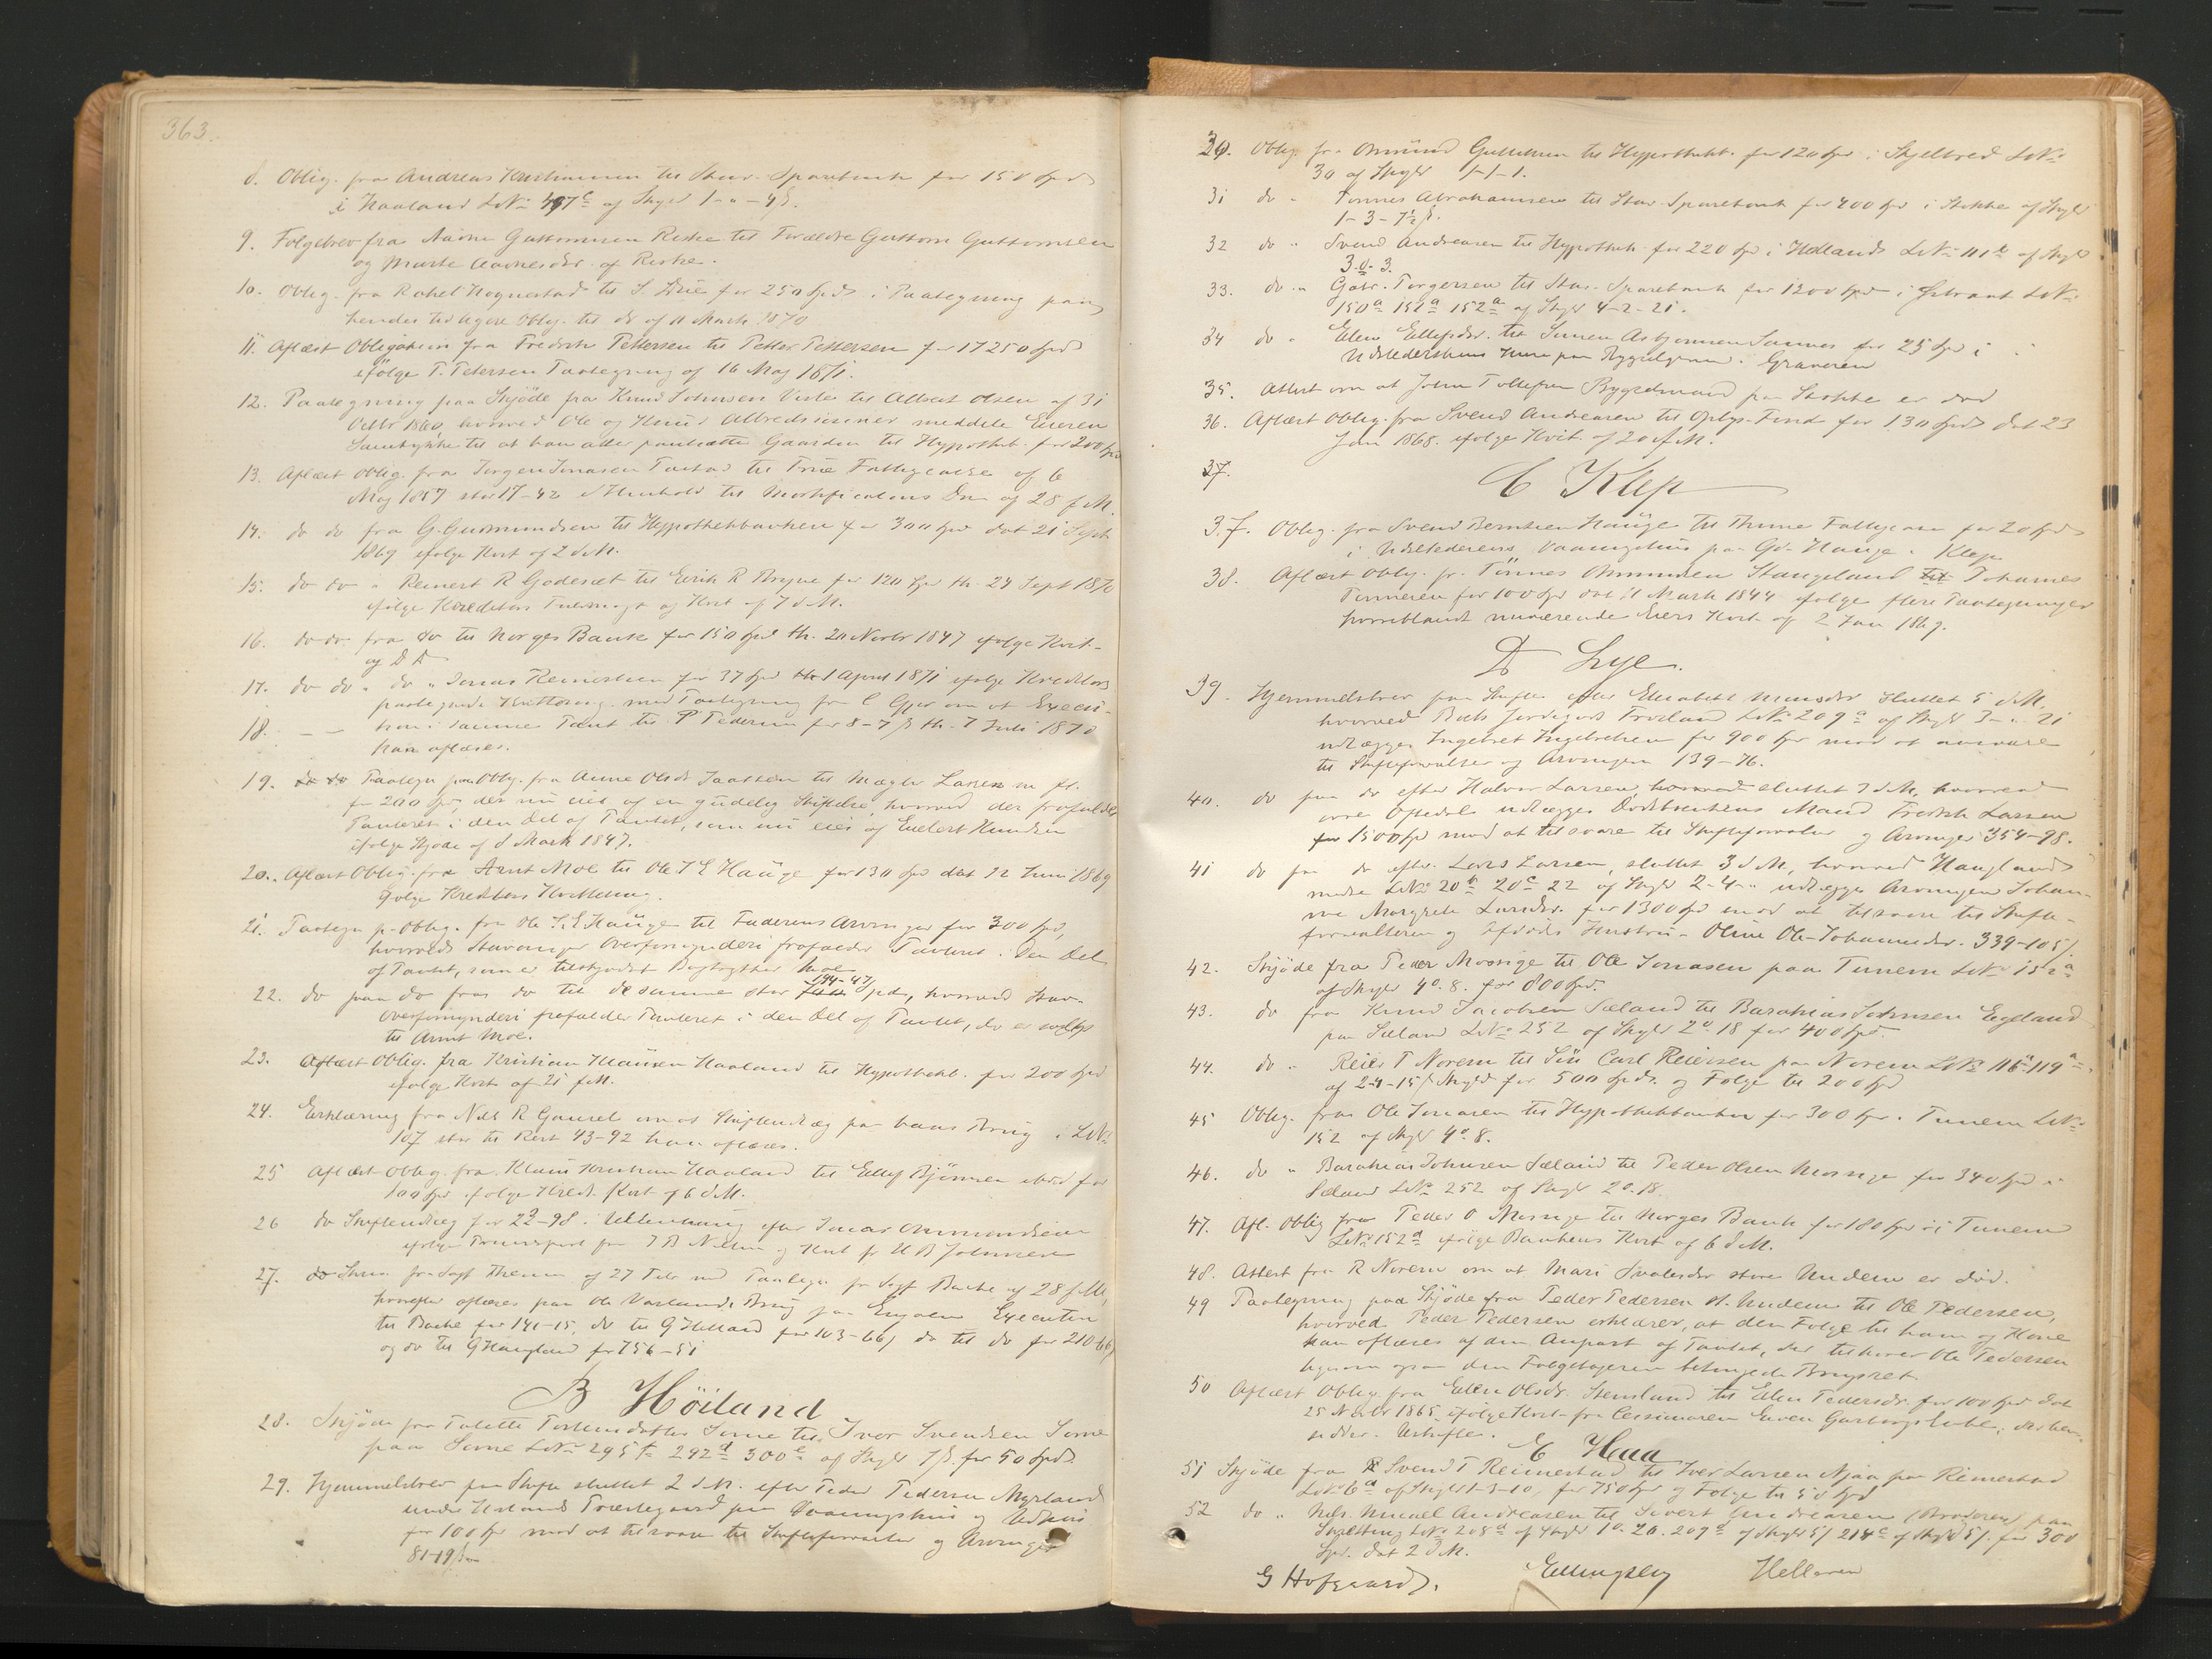 363.
8. Oblig. fra Andreas Kristiansen til Stav. Sparebank for 150 Spd
i Haaland LNo 47c af Skyld 1-"-4 ß.
9. Følgebrev fra Aadne Guttormsen Reske til Forældre Guttorm Guttormsen
og Marte Aadnesdr. af Reske.
10. Oblig. fra Rakel Hognestad til S. Lie for 250 Spd i Paategning paa
hendes tidligere Oblig. til ds af 11 Mark 1870
11. Aflæst Obligation fra Fredrik Pettersen til Petter Pettersen for 17250 Spd
ifølge P. Petersen Paategning af 16 Maj 1871.
12. Paategning paa Skjøde fra Knud Johnsen Viste til Albert Olsen af 31
Octbr 1860, hvorved Ole og Knud Albredsønner meddele Eieren
Samtykke til at han atter pantsætte Gaarden til Hypothek. for 200 Spd
13. Aflæst Oblig. fra Jørgen Jonasen Tastad til Fattigcasse af 6
Maj 1857 stor 17-42 i Henhold til Mortifications Dom af 28 f.M.
14. do do fra G. Gudmundsen til Hypothekbanken for 300 Spd dat 21 Sept
1869 ifølge Kvit af 2 d.M.
15. do do " Reinert R Godeset til Eirik R Bryne for 120 Spd th. 24 Sept 1870
ifølge Kreditors og Kvit af 7 d.M.
16. do do fra do til Norges Bank for 150 Spd th. 20 Novbr 1847 ifølge Kvit.
og D D
17. do do " do " Jonas Reinertsen for 37 Spd th 1 April 1871 ifølge Kreditors
paategnede Kvittering med Paategning fra C Gjør om at Execu-
18. - - tion i samme Pant til P Pedersen for 8-7 ß th. 7 Juli 1870
kan aflæses.
19. do do Paategn paa Oblig. fra Anne Olsdr Jaatten til Mægler Larsen m fl.
for 200 Spd, der nu eies af en gudelig Stiftelse, hvorved der frafaldes
Panteret i den Del af Pantet, som nu eies af Enelert Knudsen
ifølge Skjøde af 8 Mark 1847.
20. Aflæst Oblig. fra Arnt Moe til Ole T E Hauge for 130 Spd dat 22 Juni 1869
ifølge Kreditors Kvittering.
21. Paategn p. Oblig. fra Ole T. E. Hauge til Faderens Arvinger for 300 Spd,
hvorved Stavanger Overformynderi frafalder Panteret i den Del
af Pantet, som er tilskjødet Moe
22. do paa do fra do til desamme stor 194-47 Spd, hvorved Stav.
Overformynderi frafalder Panteret i den Del af Pantet, der er solgt
til Arnt Moe.
23. Aflæst Oblig. fra Kristian Hansen Haaland til Hypothekb. for 200 Spd
ifølge Kvit af 21 f.M.
24. Erklæring fra Nils R Gausel om at Skifteudlæg paa hans Brug i LNo
107 stor til Rest 43-92 kan aflæses.
25 Aflæst Oblig. fra Klaus Kristian Haaland til Ellef Bjørnsen ibid for
100 Spd ifølge Kred. Kvit af 6 d.M.
26 do Skifteudlæg for 22-98 i Ullenhaug efter Jonas Ommundsen
ifølge Transport fra J B Nielsen og Kvit fr H B Johnsen
27. do Skriv. fra Sagf Theim af 27 Febr med Paategn fra Sagf Bache af 28 f.M.,
hvorefter aflæses paa Ole Vaslands Brug paa Engolen Execution
til Bache for 141-15, do til G Helland for 103-66, do til do for 210-66
og do til G Haugland for 756-51
B Höiland
28. Skjøde fra Tolette Torkensdatter Sørne til Iver Svendsen Sørne
paa Sørne LNo 295f 292d 300c af Skyld 1 ß. for 50 Spd.
29. Hjemmelsbrev paa Skifte sluttet 2 d.M. efter Peder Pedersen Myrland
under Uelands Præstegaard paa Vaaningshus og Udhus
for 100 Spd mod at tilsvare til Skifteforvalter og Arvinger
81-19 ß
30. Oblig. fra Osmund Gullaksen til Hypothekb. for 120 Spd i Skjelbred LNo
30 af Skyld 1-1-1.
31 do " Tønnes Abrahamsen til Stav. Sparebank for 400 Spd i Stokke af Skyld
1-3-7½ ß.
32 do " Svend Andreasen til Hypothek. for 220 Spd i Hellands LNo 111b af Skyld
3.0.3.
33. do " Gabr. Torgersen til Stav. Sparebank for 1200 Spd i Østraat LNo
150a 151a 152a af Skyld 4-2-21.
34 do " Elen Ellefsdr. til Simen Asbjørnsen Sannes for 25 Spd i
Udstederskens Huus paa i Graveren
35. Attest om at John Tollefsen Bygedmand paa Stokke er død
36. Aflæst Oblig. fra Svend Andreasen til Oplys. Fond for 130 Spd dat 23
Jan 1868. ifølge Kvit. af 20 f.M.
37.
C Klep
37. Oblig. fra Svend Berntsen Hauge til Thime Fattigcasse for 20 Spd
i Udstederens Vaaningshus paa Gd. Hauge i Klep
38. Aflæst Oblig. fr. Tønnes Ommundsen Stangeland til Johannes
Tønnesen for 100 Spd dat 11 Mark 1844 ifølge flere Paategninger
hvoriblandt nuværende Eiers Kvit af 2 Jan 1869.
D Lye.
39. Hjemmelsbrev paa Skifte efter Elisabeth sluttet 5 d.M.
hvorved Boets Jordegods Frøiland LNo 209a af Skyld 3-"-21
udlægges Ingebret Ingebretsen for 900 Spd mod at ansvare
til Skifteforvalter og Arvingen 139-76.
40. do paa do efter Halvor Larsen, sluttet 7 d.M., hvorved
øvre Oftedal udlægges Dødsboets Mand Fredrik Larsen
for 1500 Spd mod at tilsvare til Skifteforvalter og Arvinger 354-98.
41 do paa do efter Lars Larsen, sluttet 3 d.M., hvorved Hauglands
nedre LNo 20b 20c 22 af Skyld 2-4-" udlægges Arvingen Johan-
ne Margrete Larsdr. for 1300 Spd mod at tilsvare til Skifte-
forvalteren og Afdødes Hustru Oline Ole-Johannesdr. 339-105 ß
42. Skjøde fra Peder Mossige til Ole Jonasen paa Tunem LNo 152a
af Skyld 4.0.8. for 800 Spd.
43. do fra Knud Jacobsen Sæland til Barakias Johnsen Eegeland
paa Sæland LNo 252 af Skyld 2.0.18 for 400 Spd.
44. do " Reier T Norem til Søn Carl Reiersen paa Norem LNo 116a 119a
af 2-4-15 ß Skyld for 500 Spd. og Følge til 200 Spd
45 Oblig. fra Ole Jonasen til Hypothekbanken for 300 Spd i Tunem LNo
152 af Skyld 4.0.8.
46. do " Barakias Johnsen Sæland til Peder Olsen Mossige for 340 Spd i
Sæland LNo 252 af Skyld 2.0.18.
47. Afl. Oblig fra Peder O Mossige til Norges Bank for 180 Spd i Tunem
LNo 152a ifølge Bankens Kvit af 6 d.M.
48. Attest fra R Norem om at Mari Svalesdr store Undem er død.
49 Paategning paa Skjøde fra Peder Pedersen st. Undem til Ole Pedersen,
hvorved Peder Pedersen erklærer, at den Følge til ham og Kone
kan aflæses af den Anpart af Pantet, der tilhører Ole Pedersen
ligesom ogsaa den Følgetageren betingede Brugsret.
50 Aflæst Oblig. fra Elen Olsdr. Stensland til Elen Pedersdr. for 100 Spd dat
25 Novbr 1865, ifølge Kvit fra Cessionaren Even Garborgs Enke, der hen-
sidder i Uskifte.
E Haa
51 Skjøde fra Svend T Reimestad til Iver Larsen Njaa paa Reimestad
LNo 6d af Skyld 1-3-10, for 750 Spd og Følge til 50 Spd
52 do " Nils Mikael Andreasen til Sivert Andreasen (Broderen) paa
LNo 208a af Skyld 1.0.20. 209d af Skyld 5 ß 214c af Skyld 5 ß. for 300
Spd. dat 2 d.M.
G Hofgaard. Ellingsen Hellaren